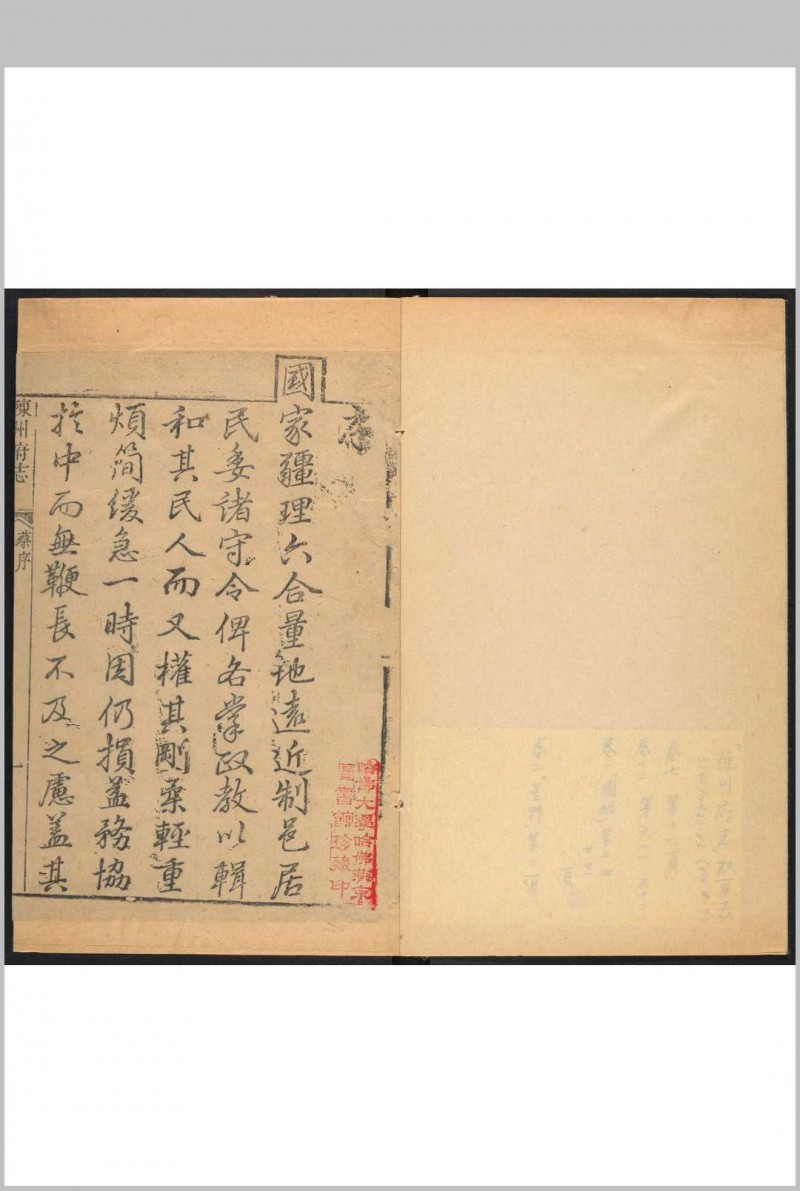 序
國家疆理六合量地遠近制邑居
民委諸守令俾各掌政教以輯
和其民人而又權其剛柔輕重
煩簡緩急一時因仍損益務協
於中而無鞭長不及之慮蓋其
陳州府志
蔡序
一
哈佛大學哈佛燕京
圖書館珍藏印